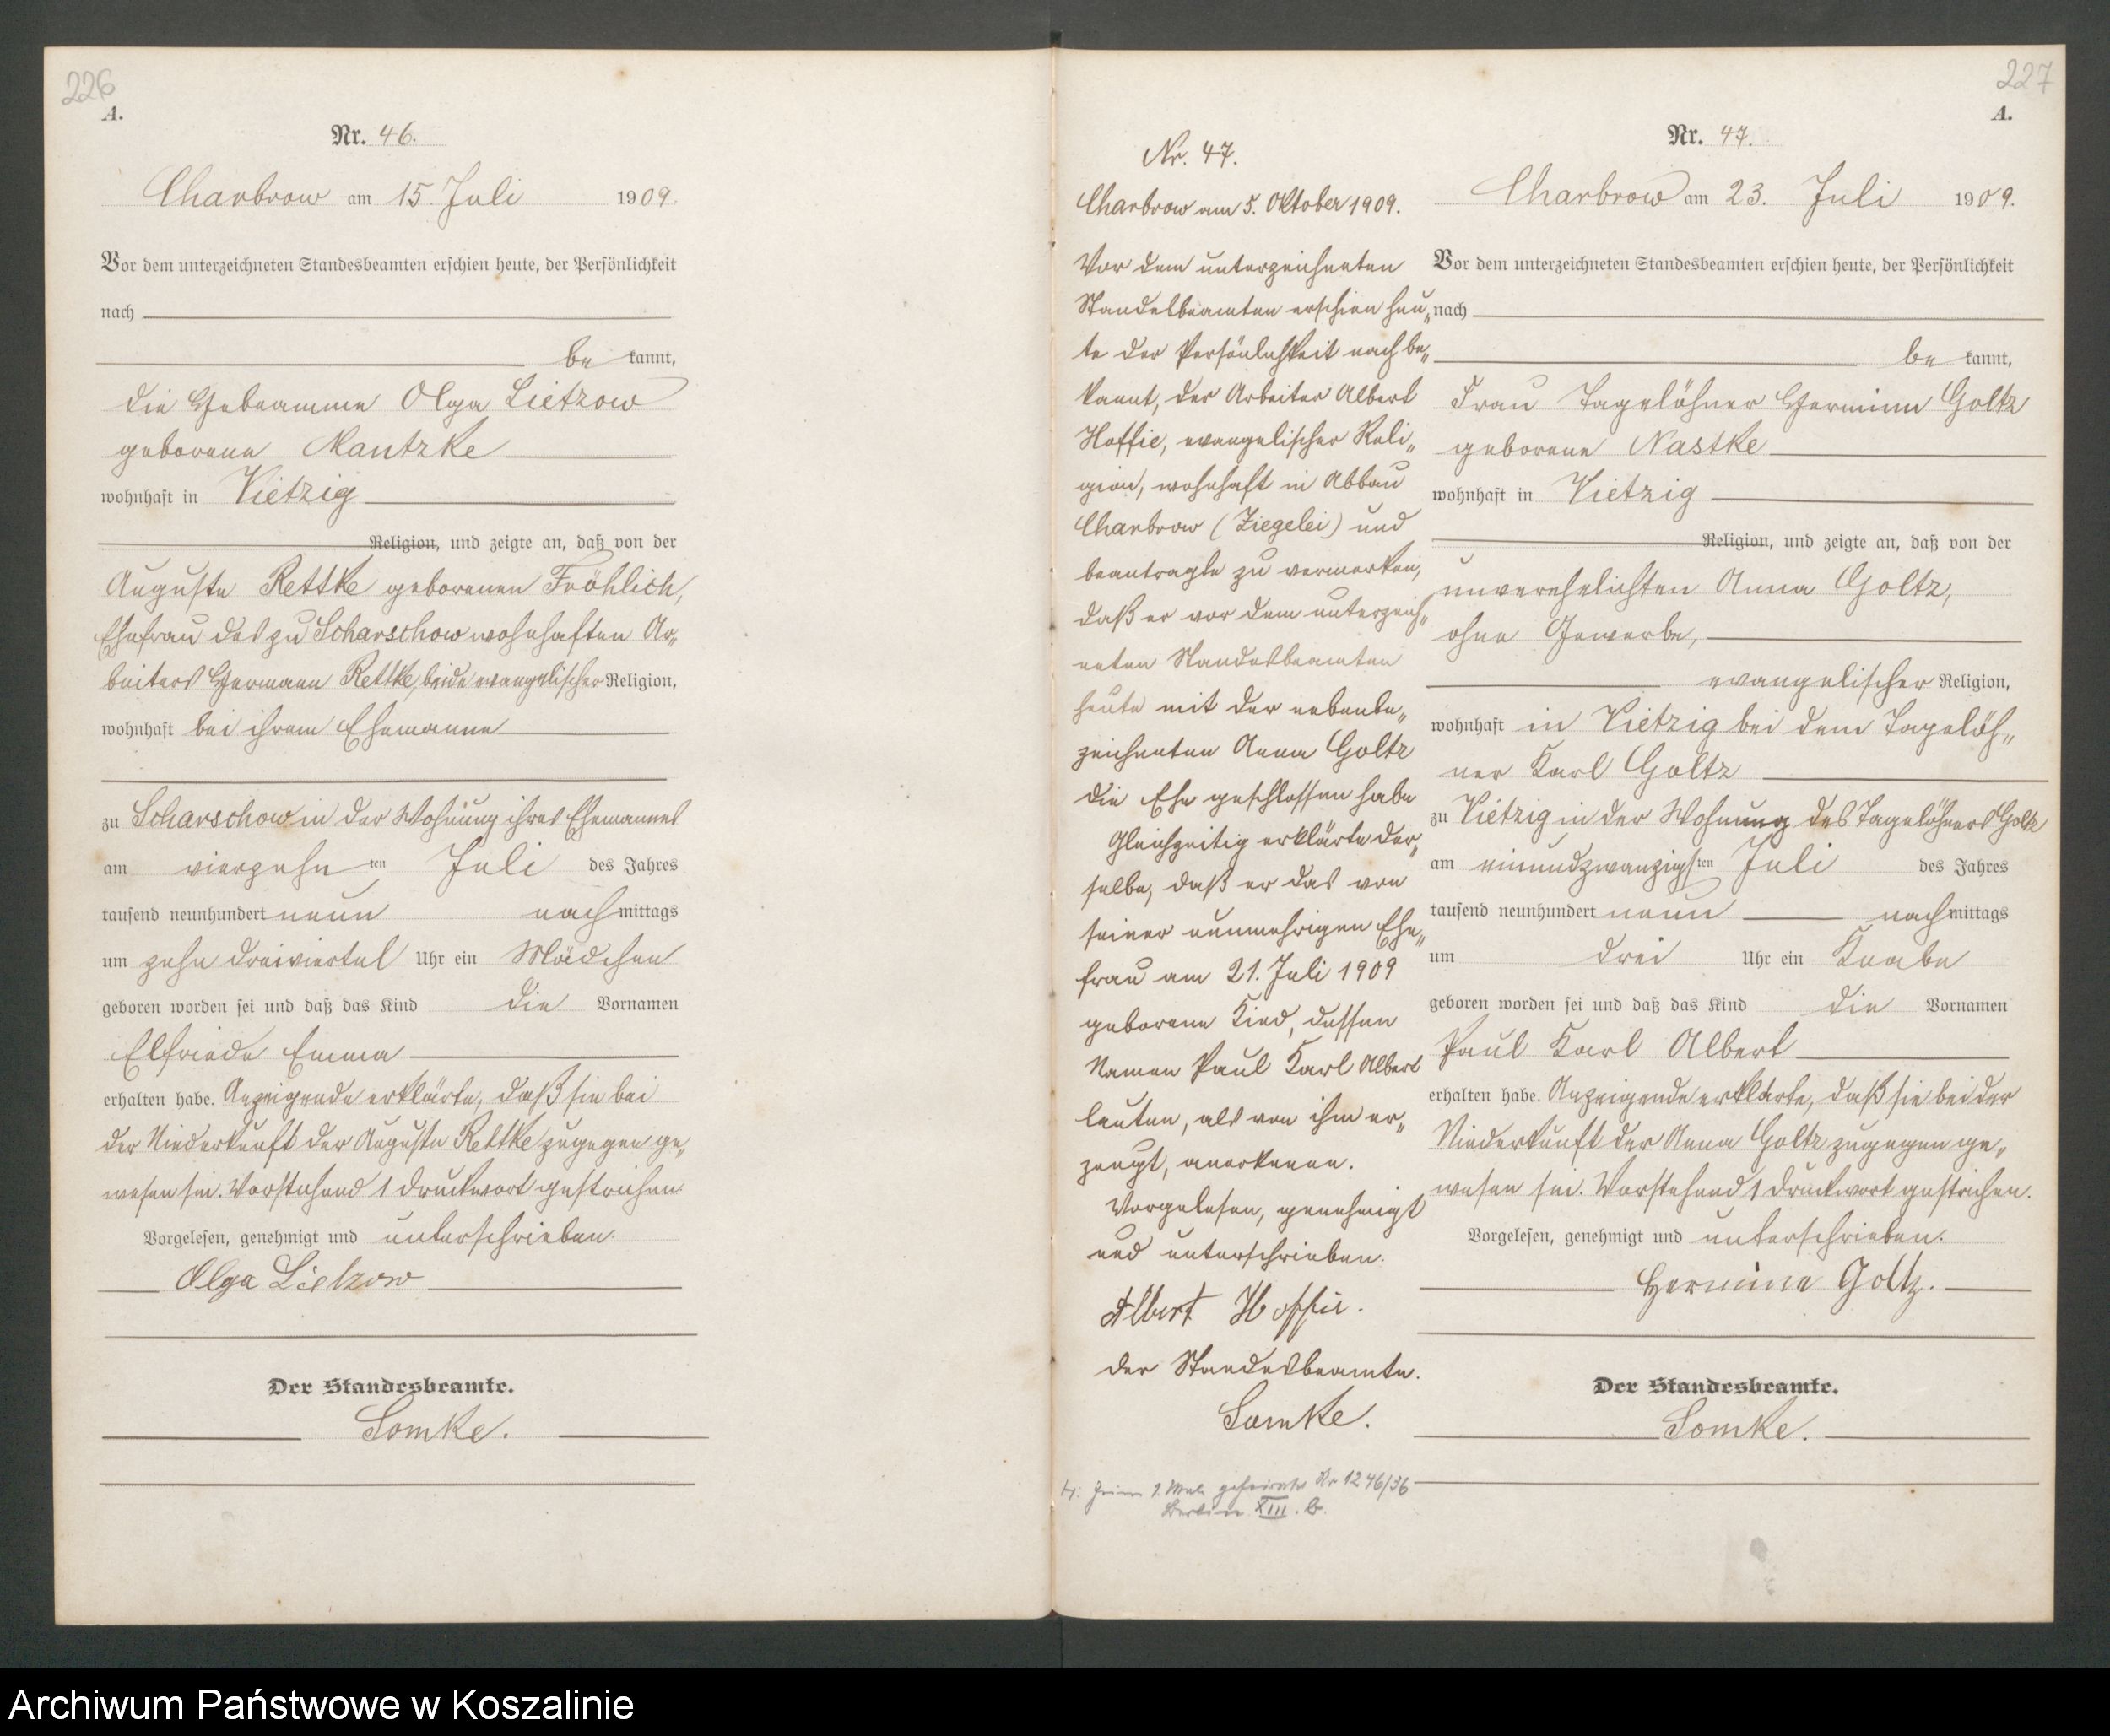 226
A.
Nr. 46.
Charbrow am 15. Juli 1909.
Vor dem unterzeichneten Standesbeamten erschien heute, der Persönlichkeit
nach
be kannt,
die Hebeamme Olga Lietzow
geborene Mantzke
wohnhaft in Vietzig
Religion, und zeigte an, daß von der
Auguste Rettke geborenen Fröhlich,
Ehefrau des zu Scharschow wohnhaften Ar„
beiters Hermann Rettke, beide evangelischer Religion,
wohnhaft bei ihrem Ehemanne
zu Scharschow in der Wohnung ihres Ehemannes
am vierzehn ten Juli des Jahres
tausend neunhundert neun nach mittags
um zehn dreiviertel Uhr ein Mädchen
geboren worden sei und daß das Kind die Vornamen
Elfriede Emma
erhalten habe. Anzeigende erklärte, daß sie bei
der Niederkunft der Auguste Rettke zugegen ge„
wesen sei. Vorstehend 1 Druckwort gestrichen.
Vorgelesen, genehmigt und unterschrieben.
Olga Lietzow
Der Standesbeamte.
Somke.
Nr. 47.
Charbrow am 5. Oktober 1909.
Vor dem unterzeichneten
Standesbeamten erschien heu„
te der Persönlichkeit nach be„
kannt, der Arbeiter Albert
Hoffie, evangelischer Reli„
gion, wohnhaft in Abbau
Charbrow (Ziegelei) und
beantragte zu vermerken,
daß er vor dem unterzeich„
neten Standesbeamten
heute mit der nebenbe„
zeichneten Anna Goltz
die Ehe geschlossen habe
Gleichzeitig erklärte der„
selbe, daß er das von
seiner nunmehrigen Ehe„
frau am 21. Juli 1909
geborene Kind, dessen
Namen Paul Karl Albert
lauten, als von ihm er„
zeugt, anerkenne.
Vorgelesen, genehmigt
und unterschrieben.
Albert Hoffie.
Der Standesbeamte.
Somke.
1. geheiratet Nr 1246/36
Berlin XIII. b.
227
A.
Nr. 47.
Charbrow am 23. Juli 1909.
Vor dem unterzeichneten Standesbeamten erschien heute, der Persönlichkeit
nach
be kannt,
Frau Tagelöhner Hermine Goltz
geborene Nastke
wohnhaft in Vietzig
Religion, und zeigte an, daß von der
unverehelichten Anna Goltz,
ohne Gewerbe,
evangelischer Religion,
wohnhaft in Vietzig bei dem Tagelöh„
ner Karl Goltz
zu Vietzig in der Wohnung des Tagelöhners Goltz
am einundzwanzigsten Juli des Jahres
tausend neunhundert neun nach mittags
um drei Uhr ein Knabe
geboren worden sei und daß das Kind die Vornamen
Paul Karl Albert
erhalten habe. Anzeigende erklärte, daß sie bei der
Niederkunft der Anna Goltz zugegen ge„
wesen sei. Vorstehend 1 Druckwort gestrichen.
Vorgelesen, genehmigt und unterschrieben.
Hermine Goltz.
Der Standesbeamte.
Somke.
Archiwum Państwowe w Koszalinie